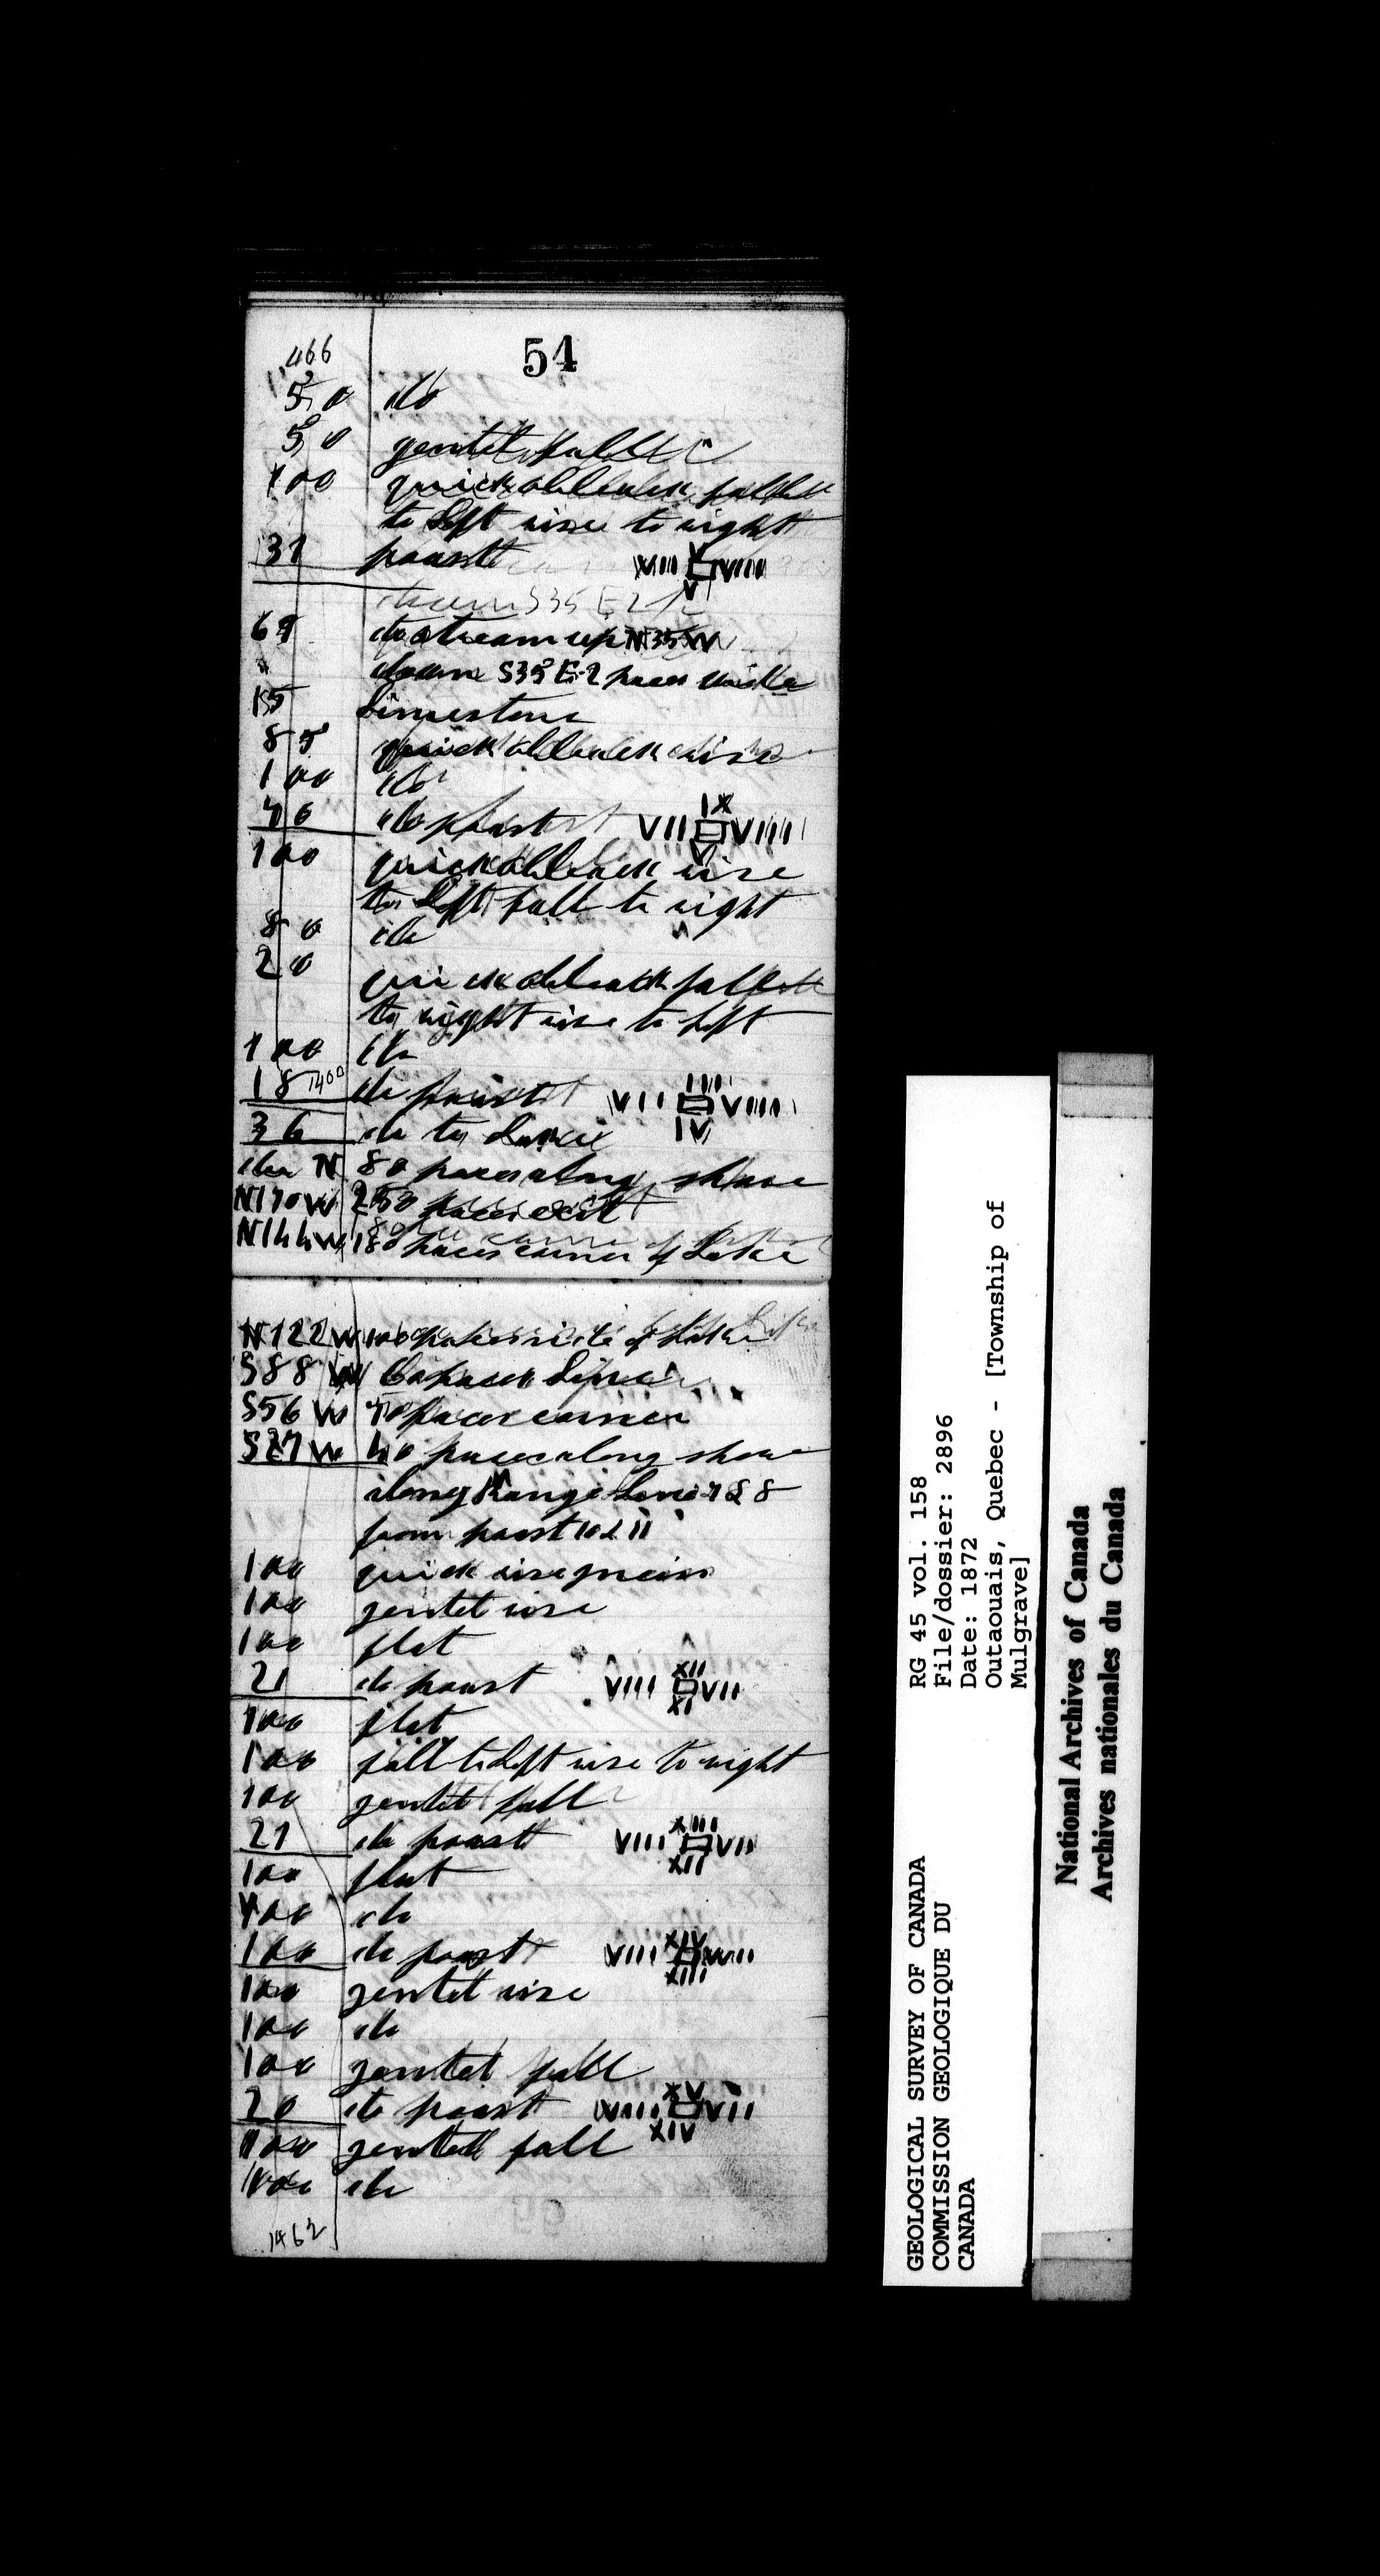 54
466
50 do
50 gentel fall
100 quick oblenck fall
to Left rise to right
31 poast VIII V VIIII
V
down S35 E 2 p
69 do stream up N35W
down S35 E 2 paces wide
15 Limestone
85 quick oblenck rise
100 do
46 do poast VII IX VIIII
V
100 quick oblenck rise
to Left fall to right
80 do
20 quick oblenck fall
to right rise to Left
100 do
18 1400 do poast VII IIII VIIII
IV
36 do to Lake
do N 80 paces along shore
N170W 250 paces
N144W 180 paces corner of Lake
N122W 100 paces side of Lake
S88W 60 paces Line
S56W 50 paces corner
S27W 40 paces along shore
along Range Line 7 & 8
from poast 10 & 11
100 quick rise gneiss
100 gentel rise
100 flat
21 do poast VIIII XII VII
XI
100 flat
100 fall to Left rise to right
100 gentel fall
21 do poast VIIII XIII VII
XII
100 flat
100 do
100 do poast VIIII XIV VII
XIII
100 gentel rise
100 do
100 gentel fall
20 do poast VIIII XV VII
XIV
100 gentel fall
100 do
1462
GEOLOGICAL SURVEY OF CANADA
COMMISSION GEOLOGIQUE DU
CANADA
RG 45 vol. 158
File/dossier: 2896
Date: 1872
Outaouais, Quebec - [Township of
Mulgrave]
National Archives of Canada
Archives nationales du Canada